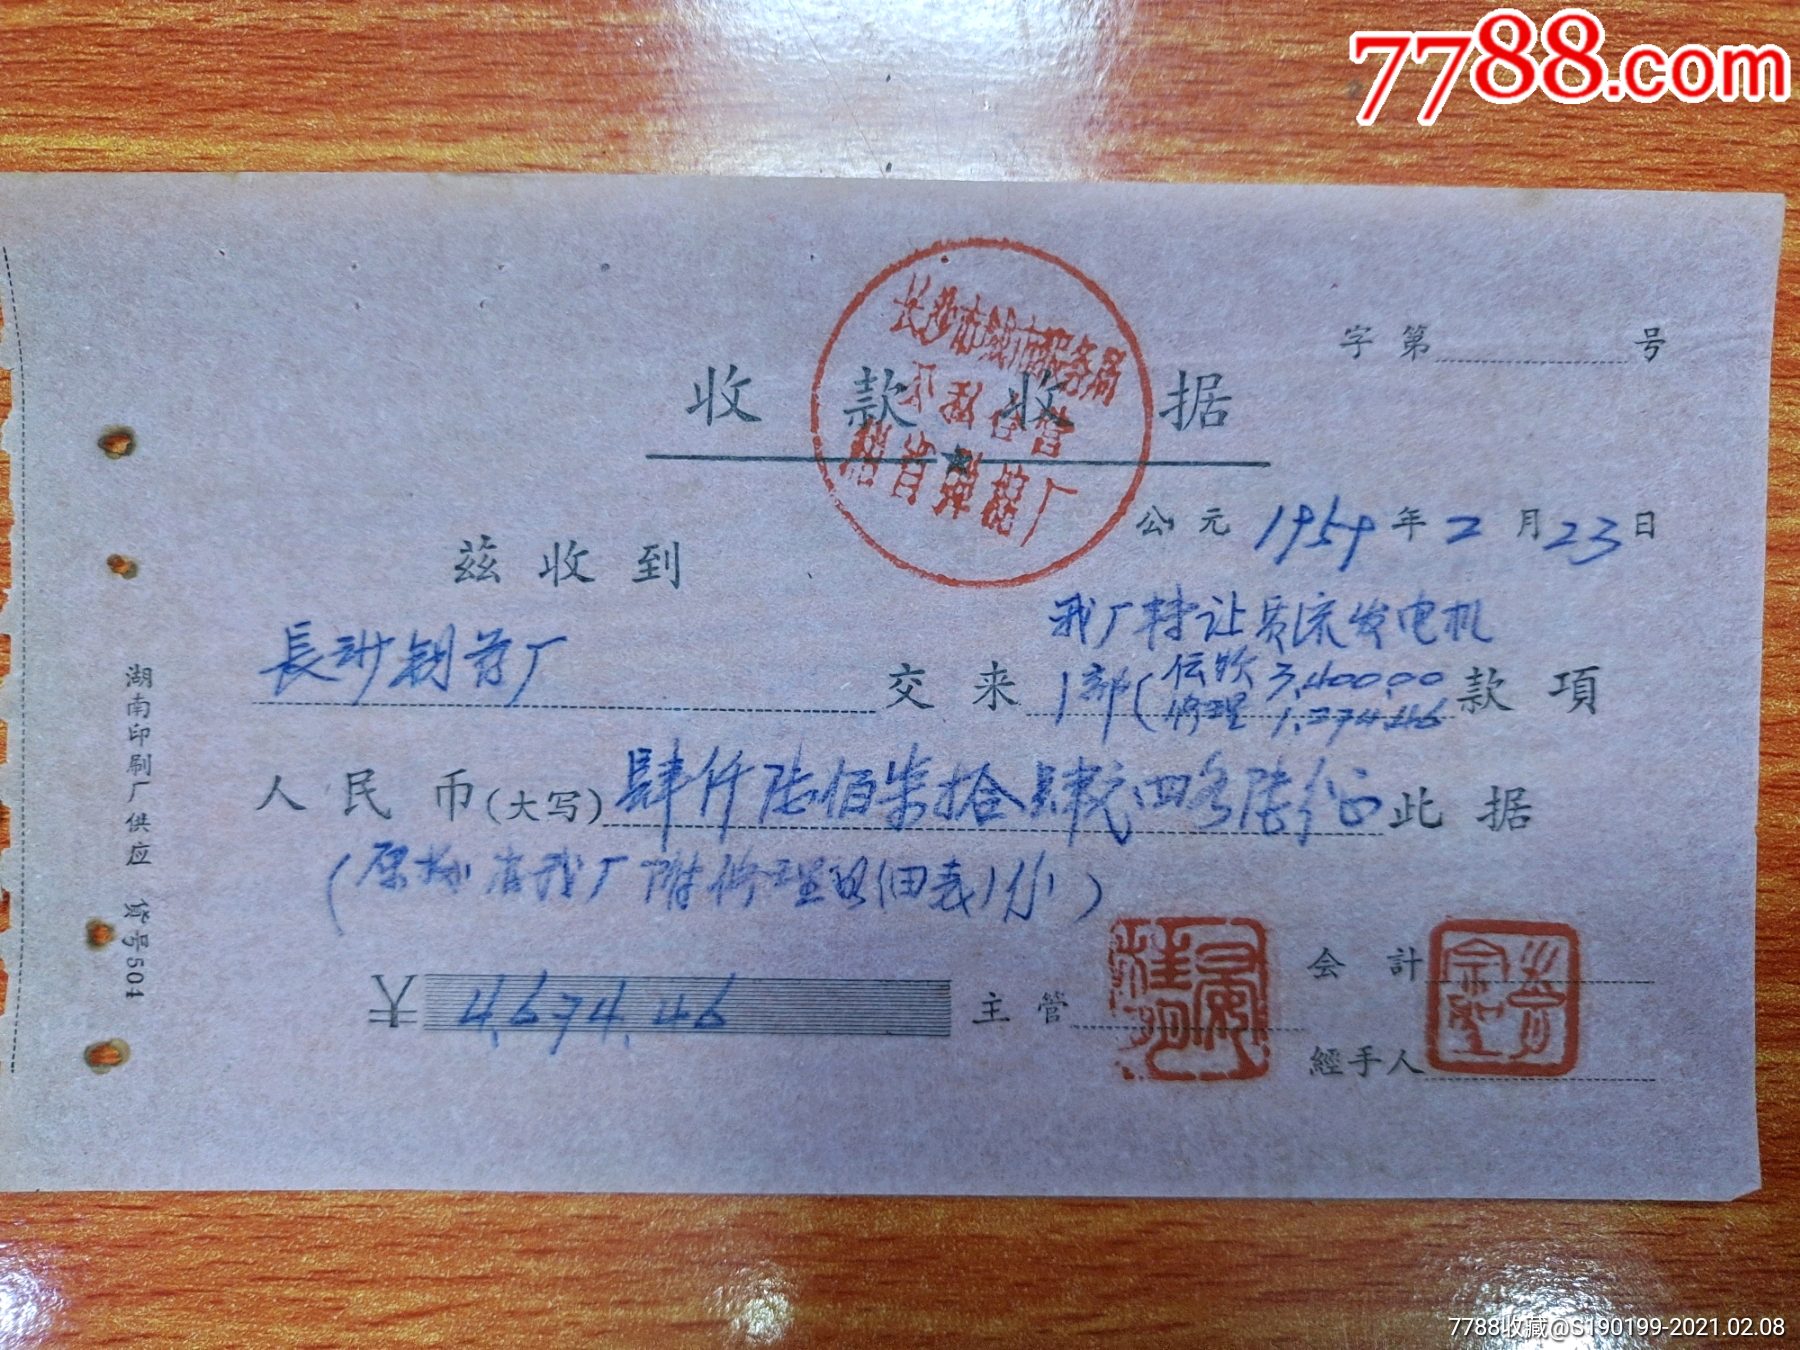 7788.com
长沙市城市服务局
公私合营
字第 号
收款收据
公元1959年2月23日
兹收到
長沙制药厂 交来 我厂转让直流发电机
1部(估价 3,400.00
修理 1,274.46 款項
人民币(大写)肆仟陆佰柒拾肆元四角陆分正此据
(原标有我厂附修理明细表1份)
4,674.46
主管
会計
經手人
湖南印刷厂供应 货号504
7788收藏@S190199-2021.02.08